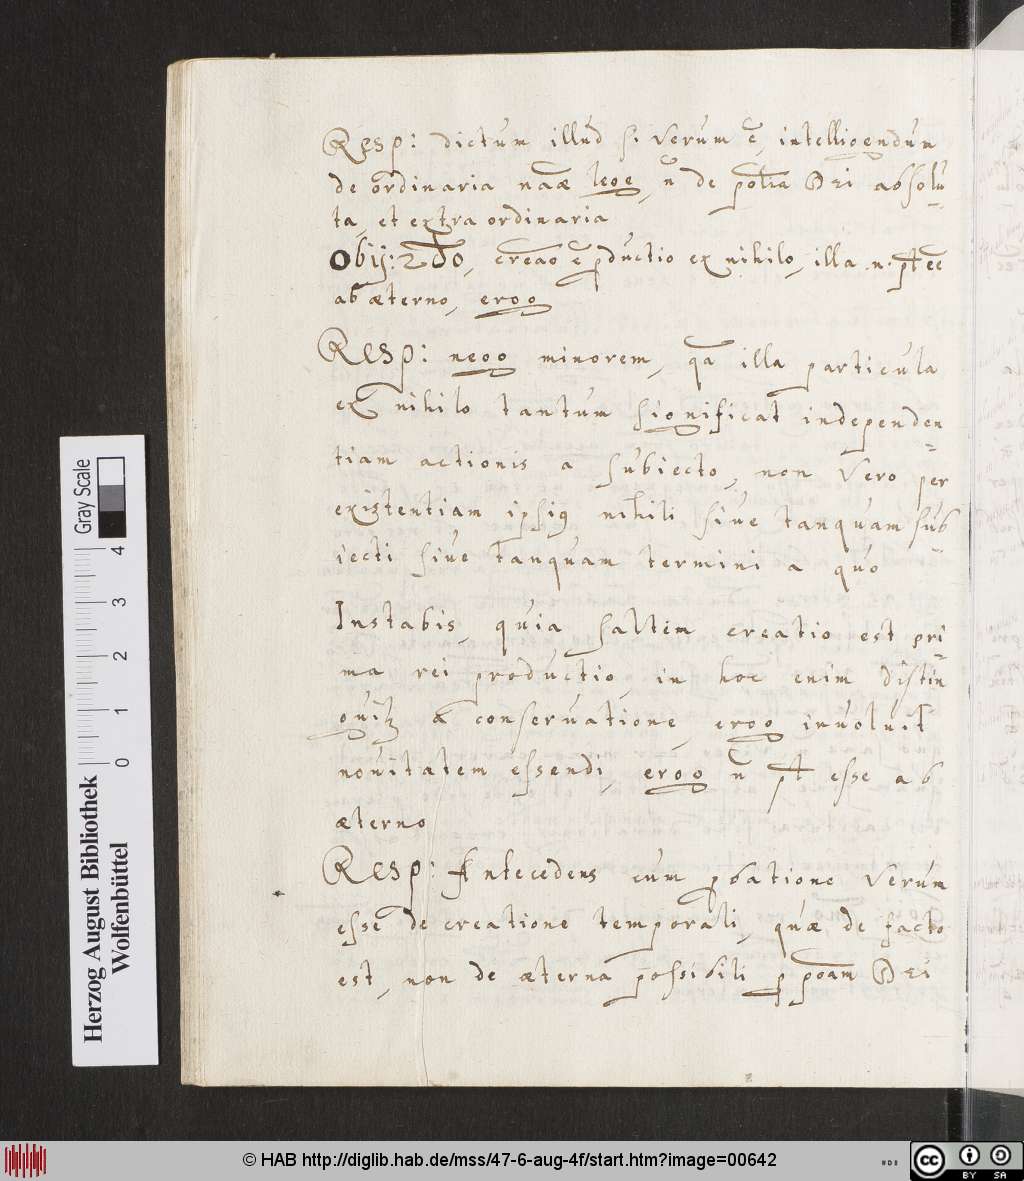 Resp: dictum illud si verum ē, intelligendum
de ordinaria naāe lege, ñ de potīa Dei absolu-
ta, et extra ordinaria
Obij: 2do, creāo ē pductio ex nihilo, illa n. pt̄ eē
ab æterno, ergo
Resp: nego minorem, qā illa particula
ex nihilo tantum significat independen-
tiam actionis a subiecto, non vero per
existentiam ipsius nihili siue tanquam sub-
iecti siue tanquam termini a quo
Instabis, quia saltem creatio est pri-
ma rei productio, in hoc enim distin-
guitr a conseruatione, ergo inuoluit
nouitatem essendi, ergo ñ pt̄ esse ab
æterno
Resp: Antecedens cum pbatione verum
esse de creatione temporali, quæ de facto
est, non de æterna possibili p poām Dei
Herzog August Bibliothek
Wolfenbüttel
0 1 2 3 4
Gray Scale
© HAB http://diglib.hab.de/mss/47-6-aug-4f/start.htm?image=00642
cc BY SA